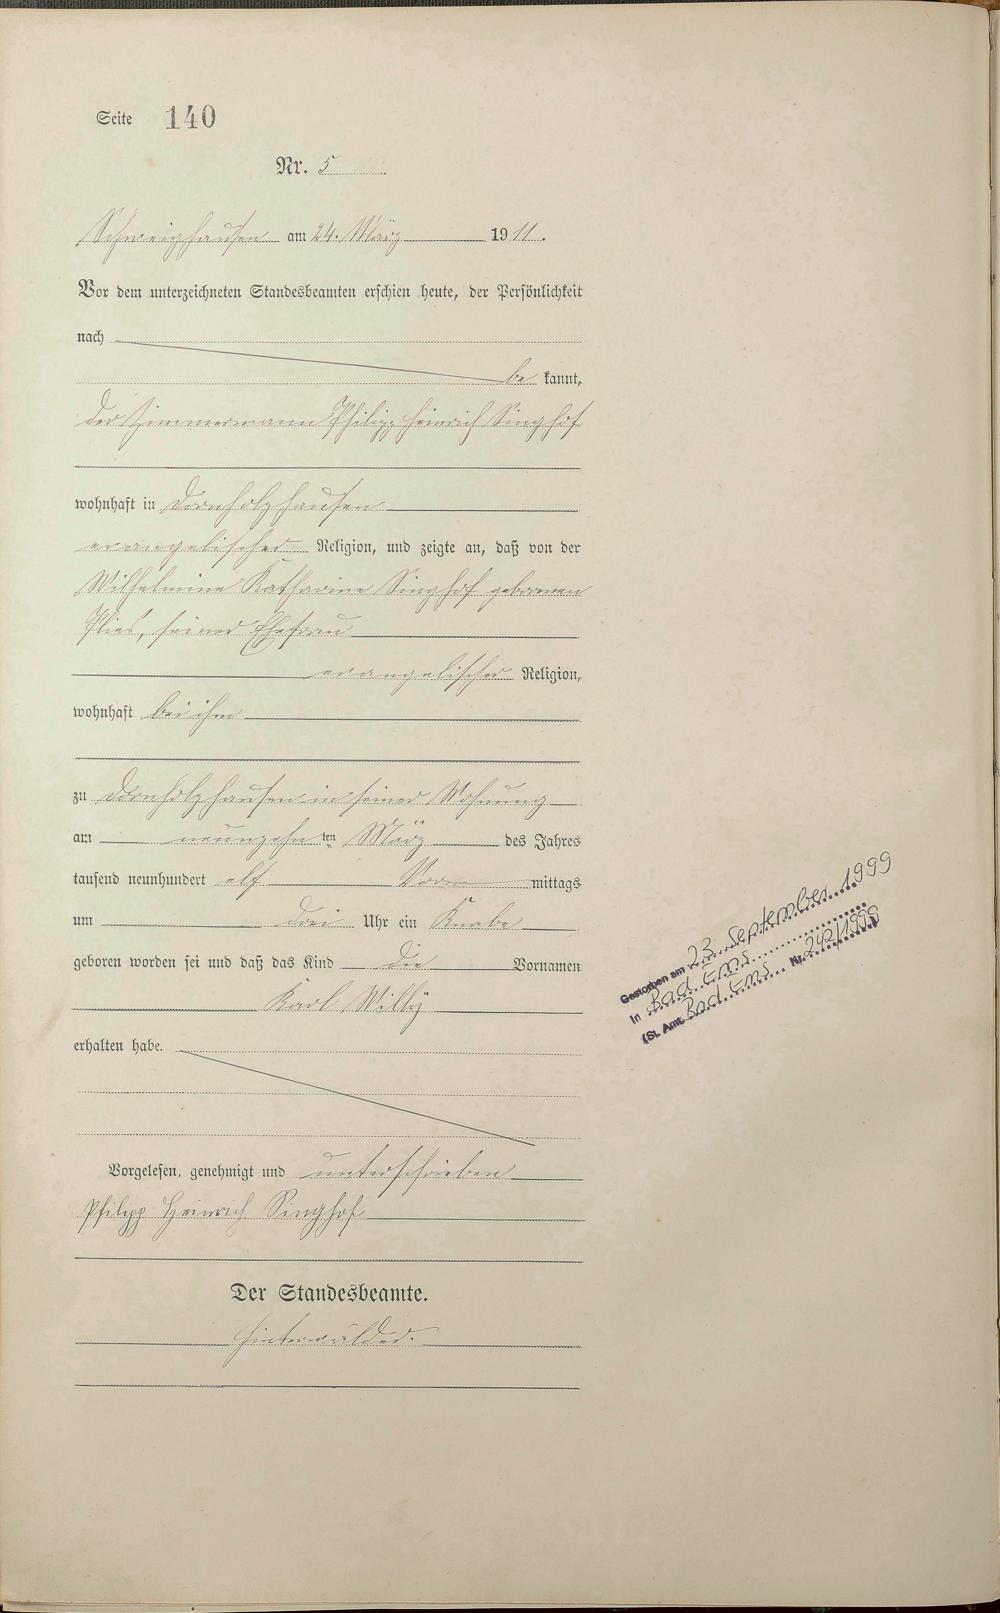 Seite 140
Nr. 5
Schweighausen am 24. März 1911.
Vor dem unterzeichneten Standesbeamten erschien heute, der Persönlichkeit
nach
be kannt,
der Zimmermann Philipp Heinrich Singhof
wohnhaft in Dornholzhausen
evangelischer Religion, und zeigte an, daß von der
Wilhelmine Katharine Singhof geborenen
Plies, seiner Ehefrau
evangelischer Religion,
wohnhaft bei ihm
zu Dornholzhausen in seiner Wohnung
am neunzehn ten März des Jahres
tausend neunhundert elf Vor mittags
um drei Uhr ein Knabe
geboren worden sei und daß das Kind die Vornamen
Karl Willy
erhalten habe.
Vorgelesen, genehmigt und unterschrieben
Philipp Heinrich Singhof
Der Standesbeamte.
Hinterwälder.
Gestorben am 23. September 1999
in Bad Ems
(St. Amt Bad Ems Nr. 242/1999)